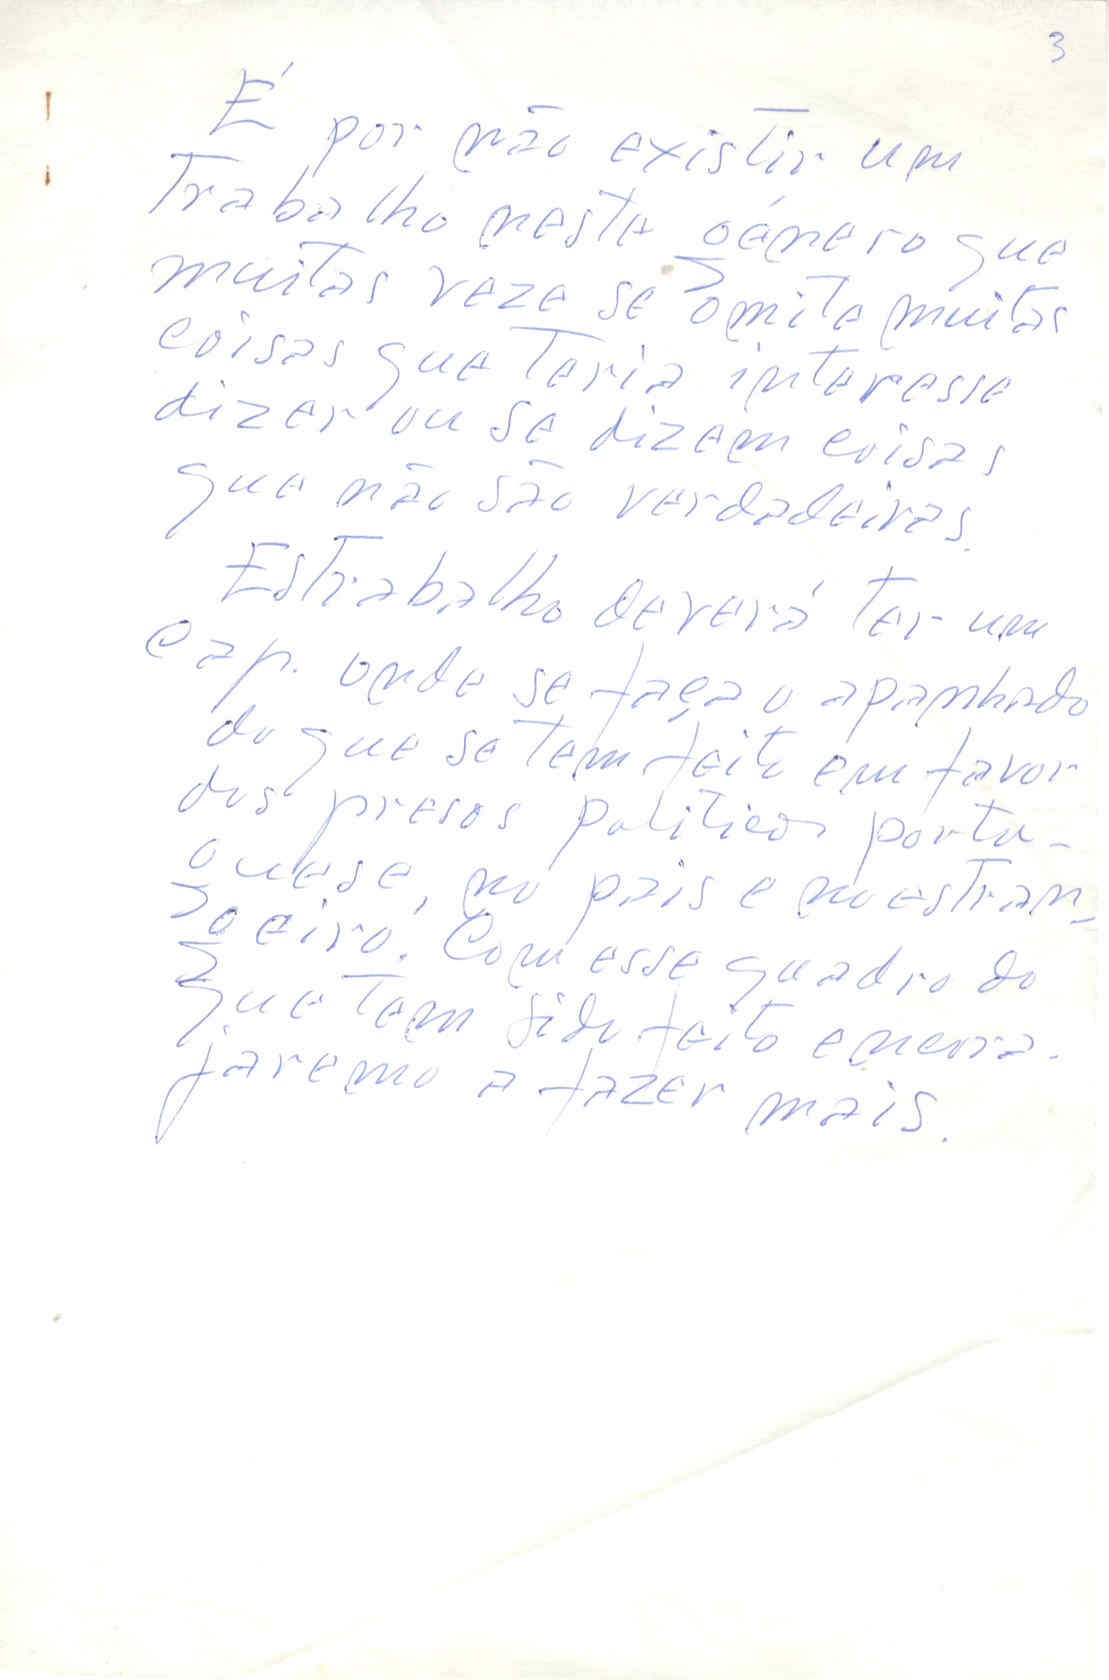 3
É por não existir um
trabalho neste género que
muitas veze se omite muitas
coisas que teria interesse
dizer ou se dizem coisas
que não são verdadeiras.
Estrabalho deverá ter um
cap. onde se faça o apanhado
do que se tem feito em favor
dos presos politicos portu-
guese, no pais e no estran-
geiro. Com esse quadro do
que tem sido feito encora-
jaremo a fazer mais.